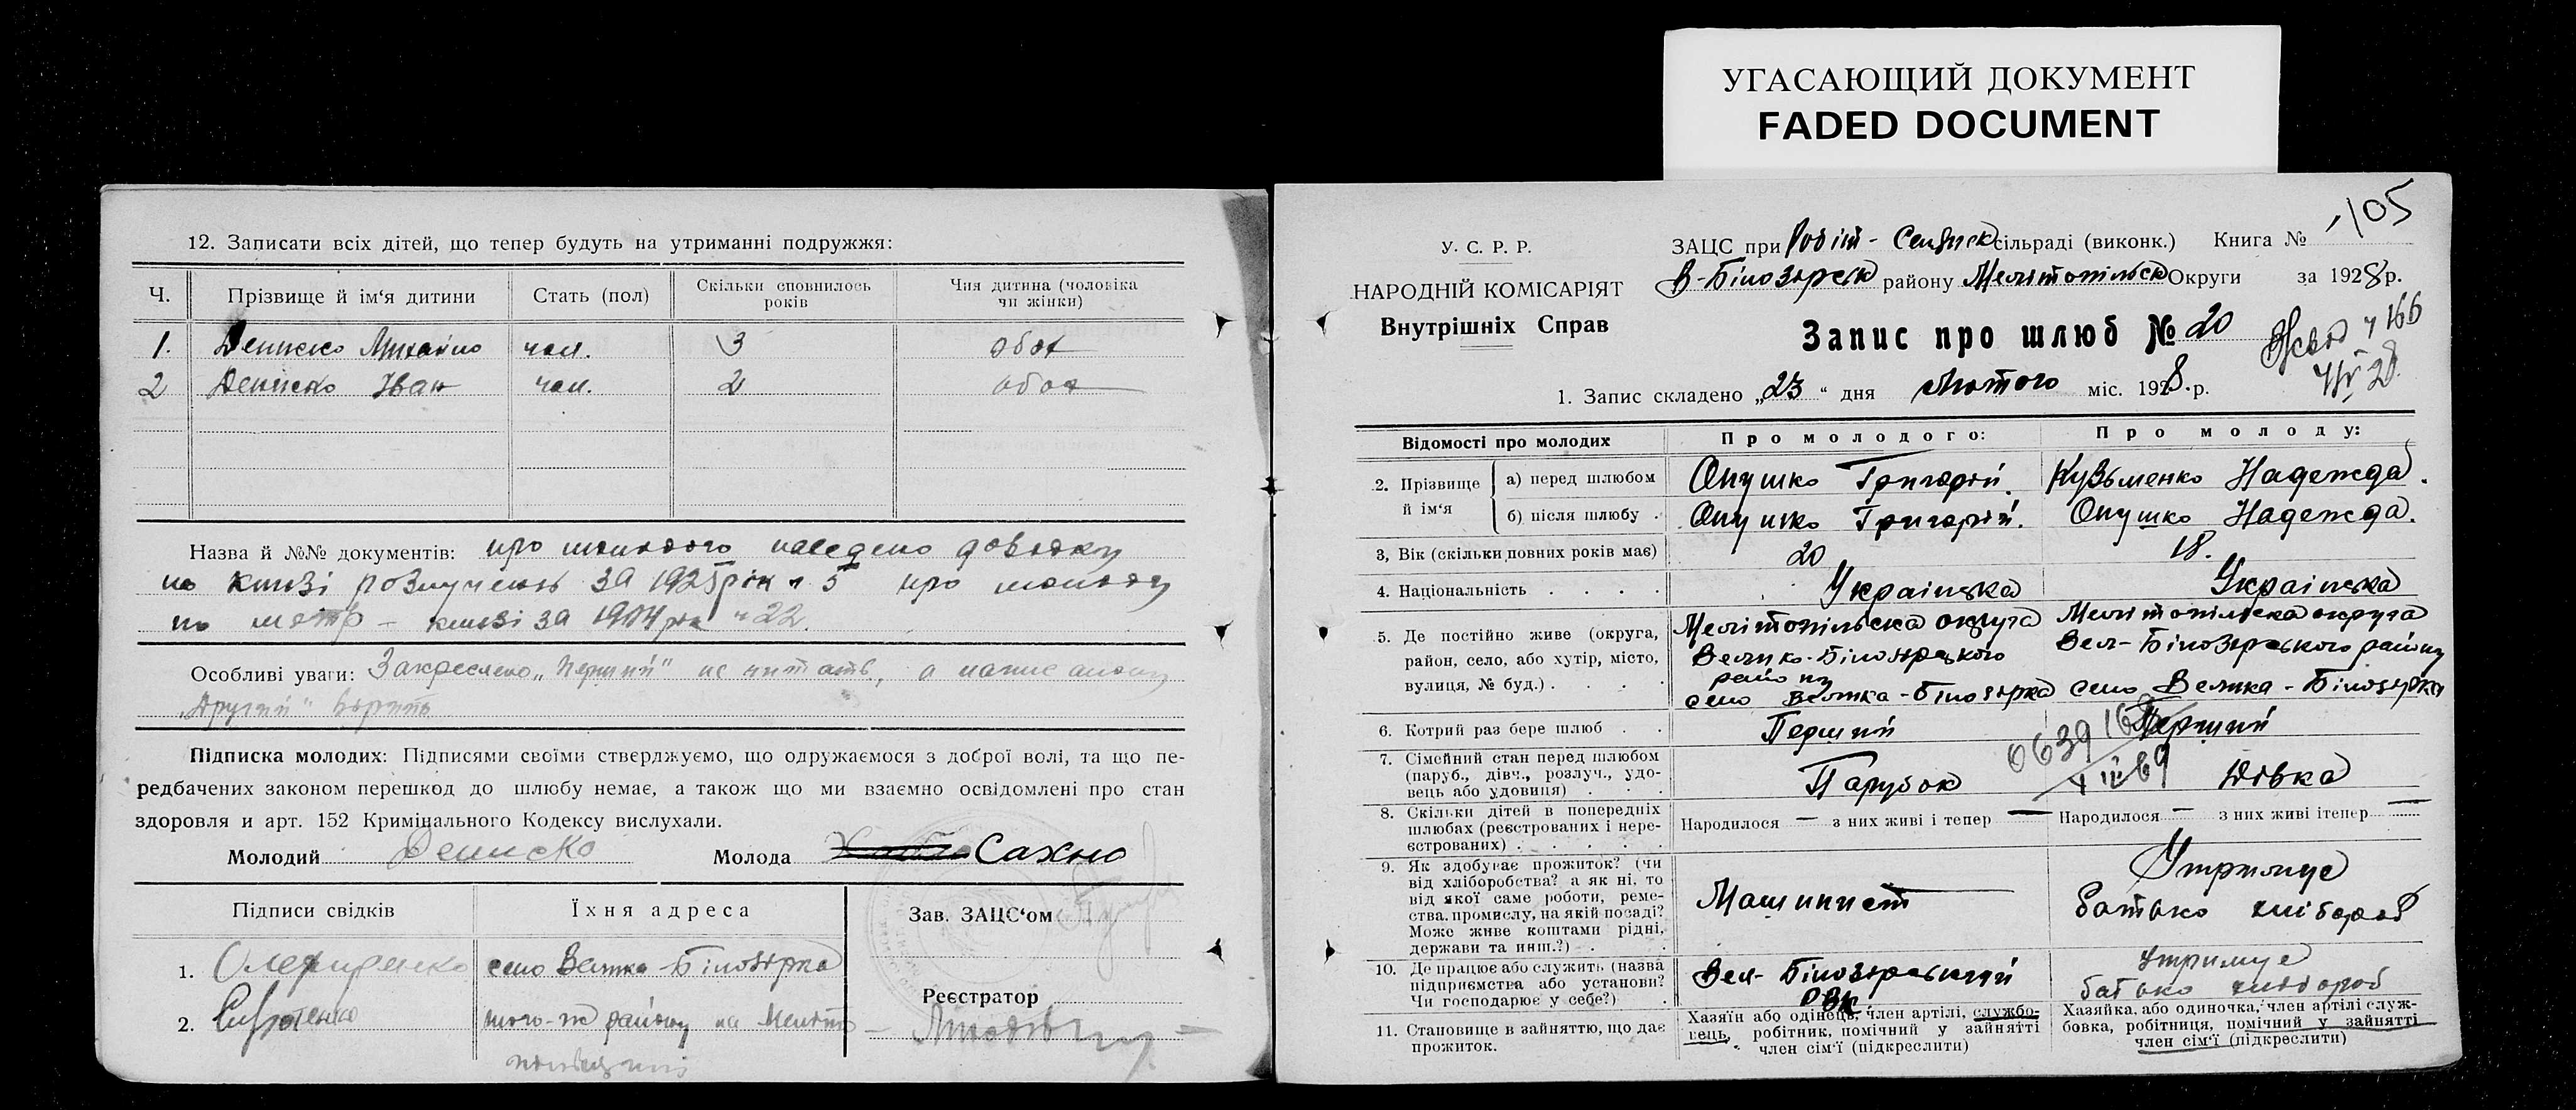 УГАСАЮЩИЙ ДОКУМЕНТ
FADED DOCUMENT
12. Записати всіх дітей, що тепер будуть на утриманні подружжя:
Ч. Прізвище й ім‘я дитини Стать (пол) Скільки сповнилось років Чия дитина (чоловіка чи жінки)
1. Дениско Михайло чол. 3 обох
2 Дениско Іван чол. 2 обох
Назва й №№ документів: про молодого наведено довідку
по книзі розлучень за 1925 рік ч 5 про молоду
по метр – книзі за рік ч 22.
Особливі уваги: Закреслено „Перший" не читать, а написаному
„Другий" вірить
Підписка молодих: Підписями своїми стверджуємо, що одружаємося з доброї волі, та що пе-
редбачених законом перешкод до шлюбу немає, а також що ми взаємно освідомлені про стан
здоровля и арт. 152 Кримінального Кодексу вислухали.
Молодий Дениско Молода Сахно
Підписи свідків Їхня адреса Зав. ЗАЦС‘ом
1. село Велика-Білозірка
2. того-ж району на
Реєстратор
105
У. С. Р. Р.
НАРОДНІЙ КОМІСАРІЯТ
Внутрішніх Справ
ЗАЦС при сільраді (виконк.) Книга №
В-Білозірськ району Мелітопільськ Округи за 1928 р.
Запис про шлюб № 20
ч 166
1. Запис складено „23“ дня лютого міс. 1928 р.
Відомості про молодих Про молодого: Про молоду:
2. Прізвище й ім‘я а) перед шлюбом Опушко Григорій. Кузьменко Надежда.
б) після шлюбу . Опушко Григорій. Опушко Надежда.
3, Вік (скільки повних років має) 20 18.
4. Національність . . . . Українська Українська
5. Де постійно живе (округа, район, село, або хутір, місто, вулиця, № буд.) . . . .
Мелітопільська округа Велико-Білозірського району село Велика-Білозірка
Мелітопільська округа Вел-Білозірського району село Велика-Білозірка
6. Котрий раз бере шлюб . . Перший Перший
7. Сімейний стан перед шлюбом (паруб., дівч., розлуч., удовець або удовиця) . . . Парубок Дівка
8. Скільки дітей в попередніх шлюбах (реєстрованих і нереєстрованих) . . . . .
Народилося — з них живі і тепер — Народилося — з них живі ітепер —
9. Як здобуває прожиток? (чи від хліборобства? а як ні, то від якої саме роботи, ремества, промислу, на якій посаді? Може живе коштами рідні, держави та инш.?) .
Машиніст
Утримує батько хлібороб
10. Де працює або служить (назва підприємства або установи? Чи господарює у себе?) .
Вел-Білозірський РВК
утримує батько хлібороб
11. Становище в зайняттю, що дає прожиток.
Хазяїн або одінець, член артілі, службовець, робітник, помічний у зайнятті член сім‘ї (підкреслити)
Хазяйка, або одиночка, член артілі службовка, робітниця, помічний у зайнятті член сім‘ї (підкреслити)